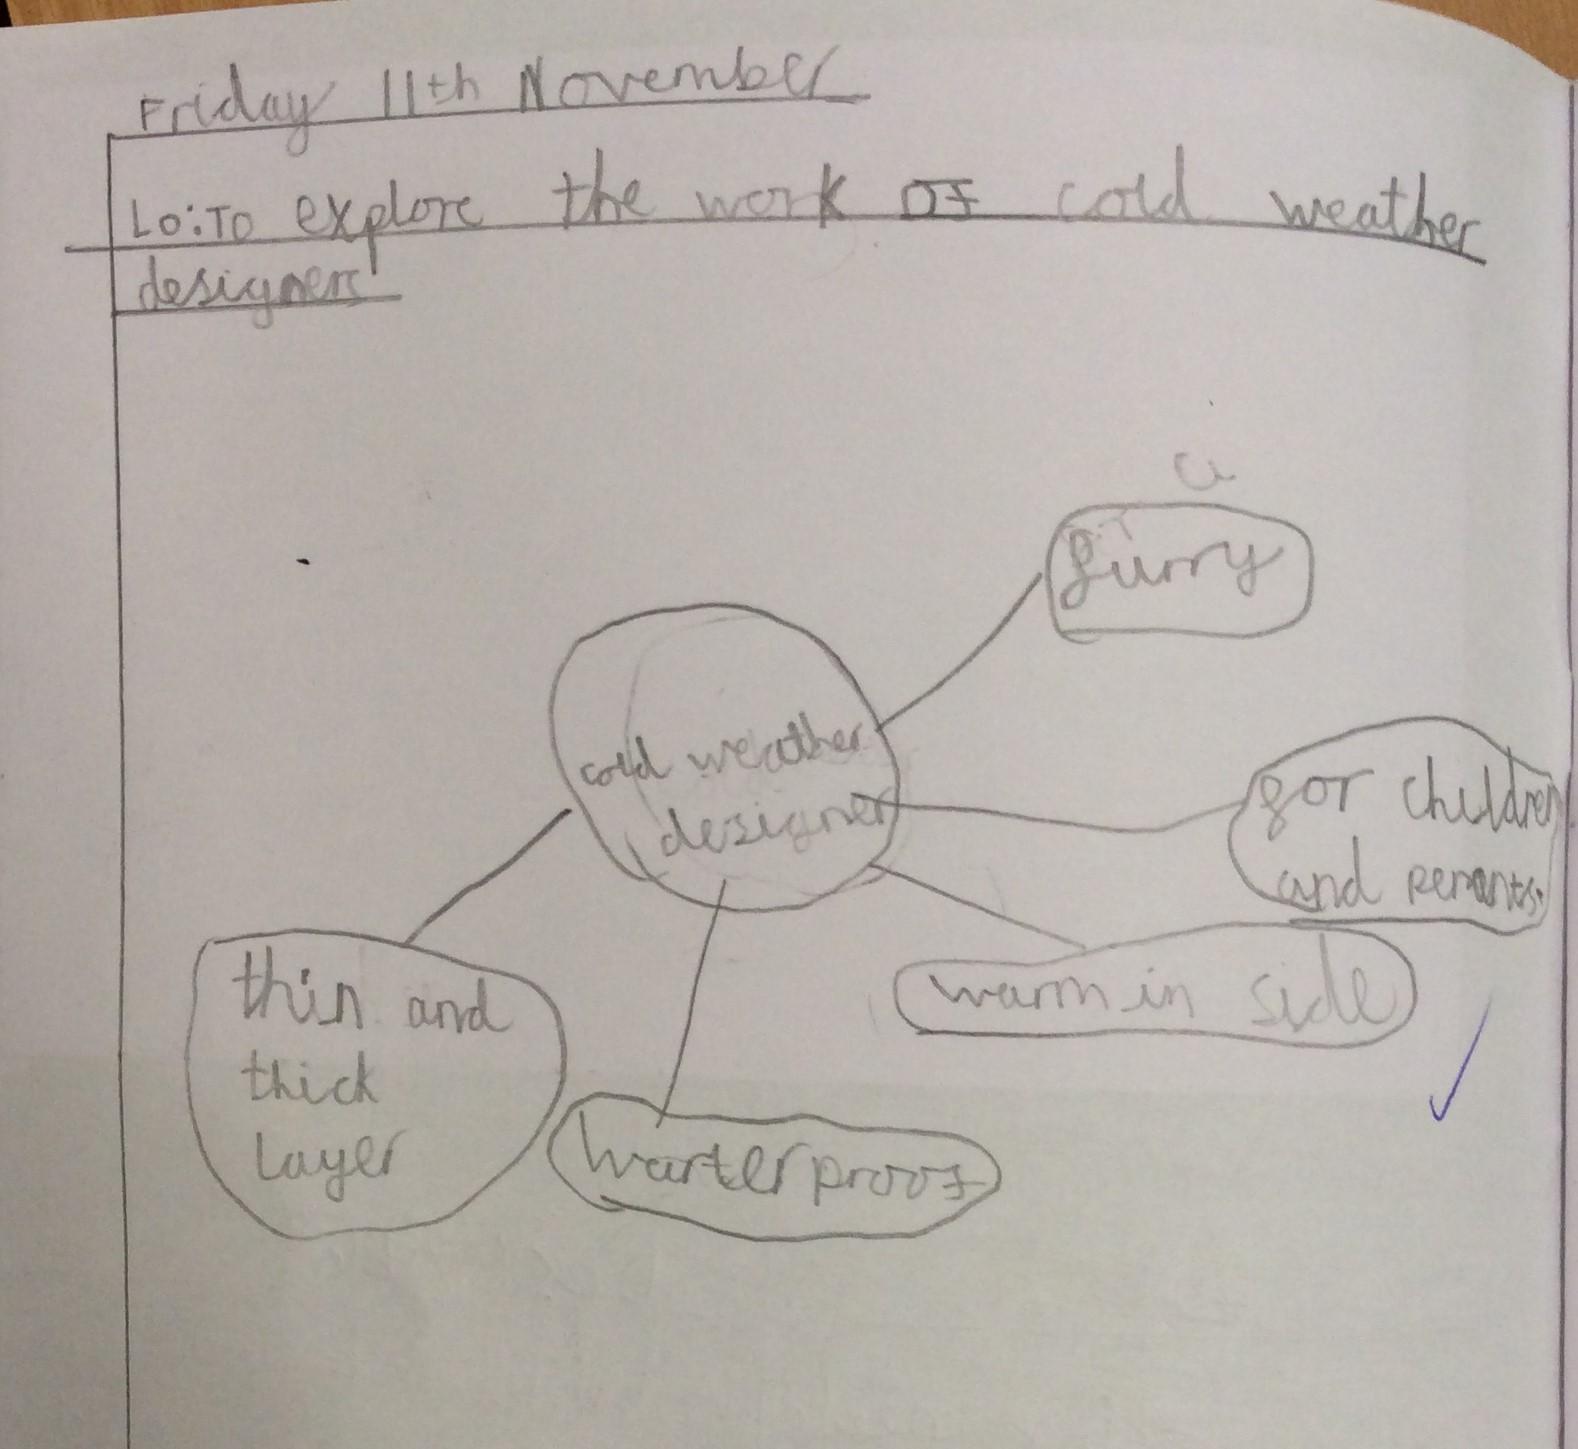 Friday 11th November
Lo: To explore the work of cold weather
designers
furry
cold weather
designer
for children
and perants.
warm in side
thin and
thick
layer
warter proof